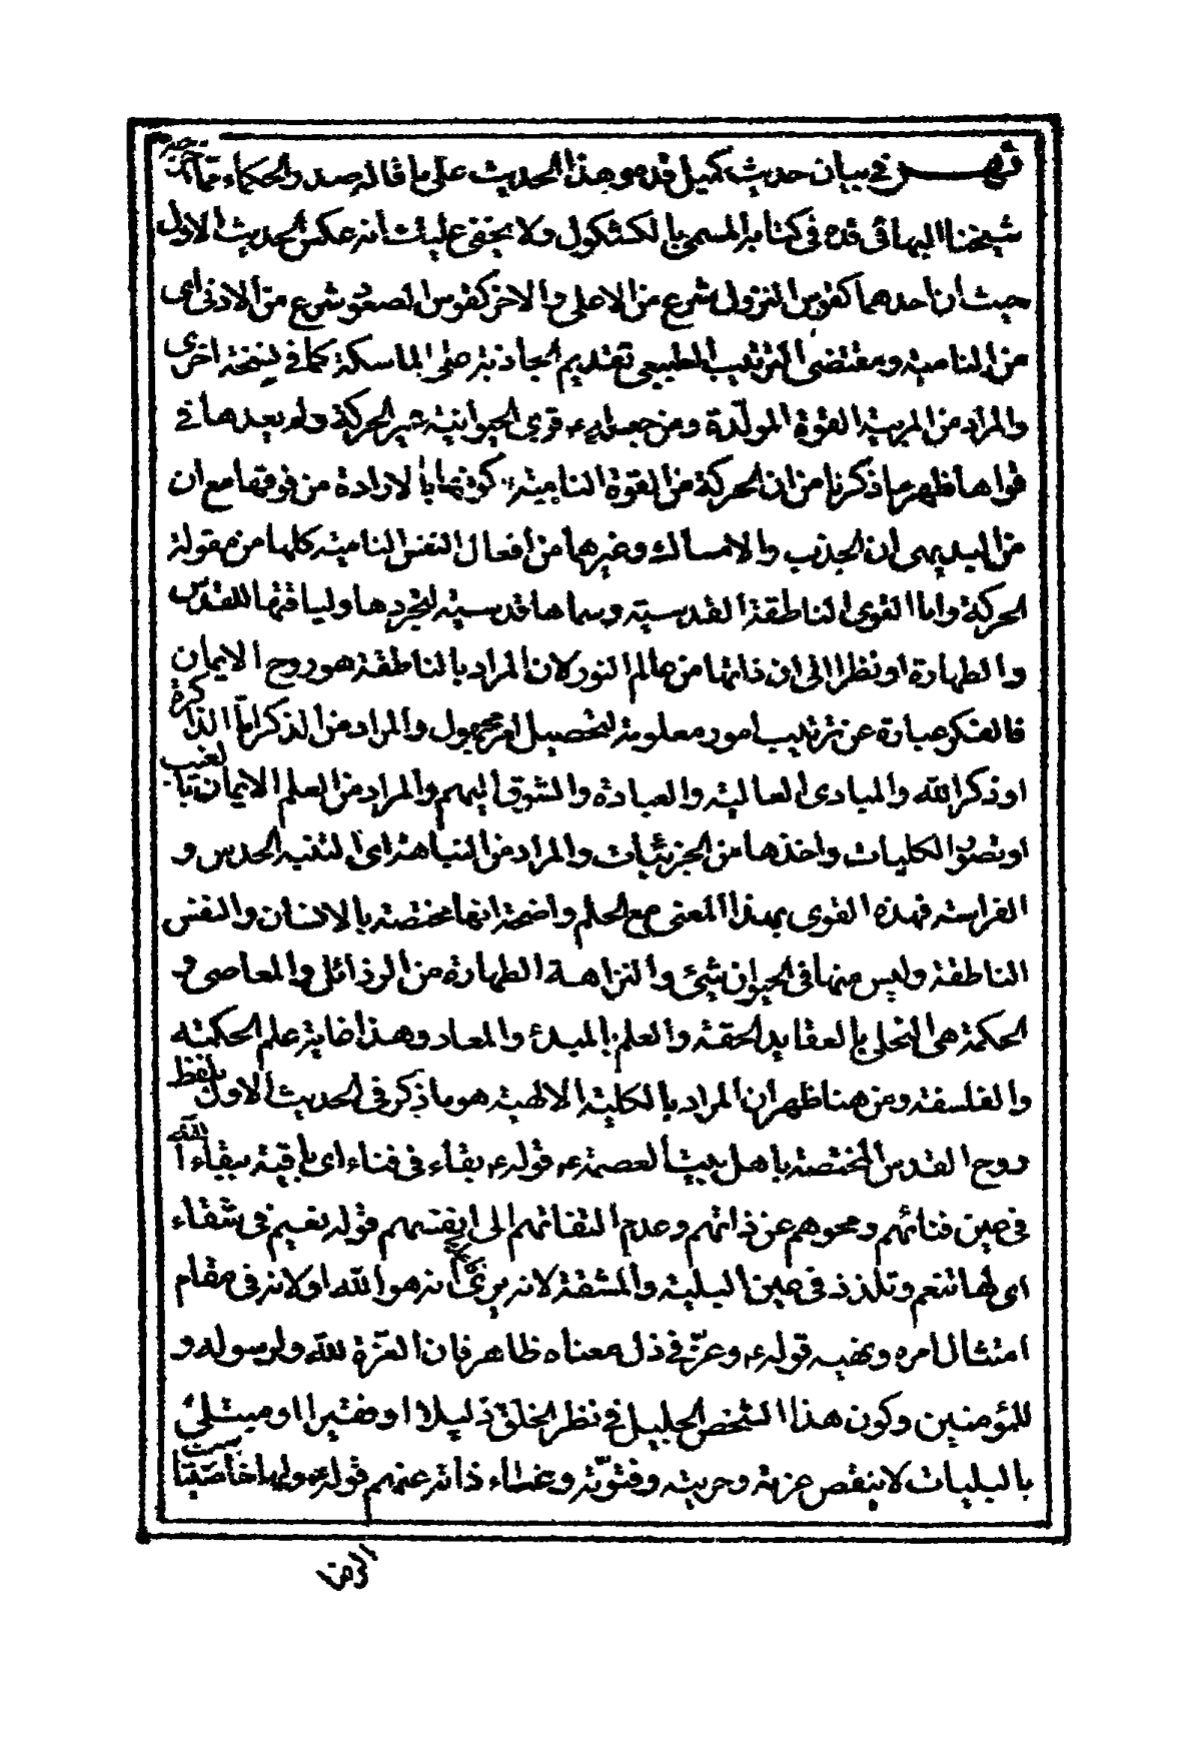 نهر في بيان حديث كميل قده وهذا الحديث على ما قاله صدر الحكماء مما
شيخنا البهائى قده فى كتابه المسمى بالكشكول ولا يخفى عليك انه عكس الحديث الاول
حيث ان احدهما كقوس النزول شرع من الاعلى والاخر كقوس الصعود شرع من الادنى اى
من النامية ومقتضى الترتيب الطبيعى تقديم الجاذبة على الماسكة كما في نسخة اخرى
والمراد من المربية القوة المولّدة ومن جعله ع قوى الحيوانية غير الحركة ولم يعدها في
قواها ظهر ما ذكرنا من ان الحركة من القوة النامية كونها بالارادة من فوقها مع ان
من البديهى ان الجذب والامساك وغيرها من افعال النفس النامية كلها من مقولة
الحركة واما القوى الناطقة القدسية وسماها قدسية لتجردها ولياقتها للتقدس
والطهارة او نظرا الى ان ذاتها من عالم النور لان المراد بالناطقة هو روح الايمان
فالفكر عبارة عن ترتيب امور معلومة لتحصيل امر مجهول والمراد من الذكر اما الذاكرة
او ذكر الله والمبادى العالية والعبادة والشوق اليهم والمراد من العلم الايمان بالغيب
او تصور الكليات واخذها من الجزئيات والمراد من النباهة اى التنبه الحدس و
الفراسة فهذه القوى بهذا المعنى مع الحلم واضحة انها مختصة بالانسان والنفس
الناطقة وليس منها فى الحيوان شيئ والنزاهة الطهارة من الرذائل والمعاصى و
الحكمة هى التحلى بالعقايد الحقة والعلم بالمبدء والمعاد وهذا غاية علم الحكمة
والفلسفة ومن هنا ظهر ان المراد بالكلية الالهية هو ما ذكر فى الحديث الاول بلفظ
روح القدس المختصة باهل بيت العصمة ع قوله ع بقاء فى فناء اى باقية ببقاء الله
فى عين فنائهم ومحوهم عن ذاتهم وعدم التفاتهم الى انيتهم قوله نعيم فى شقاء
اى لها تنعم وتلذذ فى عين البلية والمشقة لانه يرى انه هو الله او لانه فى مقام
امتثال امره ونهيه قوله ع وعزّ في ذل معناه ظاهر فان العزة لله ولرسوله و
للمؤمنين وكون هذا الشخص الجليل في نظر الخلق ذليلا او فقيرا او مبتلى
بالبليات لا ينقص عزته وحريته وفتوّته وغناء ذاته عنهم قوله ع ولها خاصيتا
الرضا